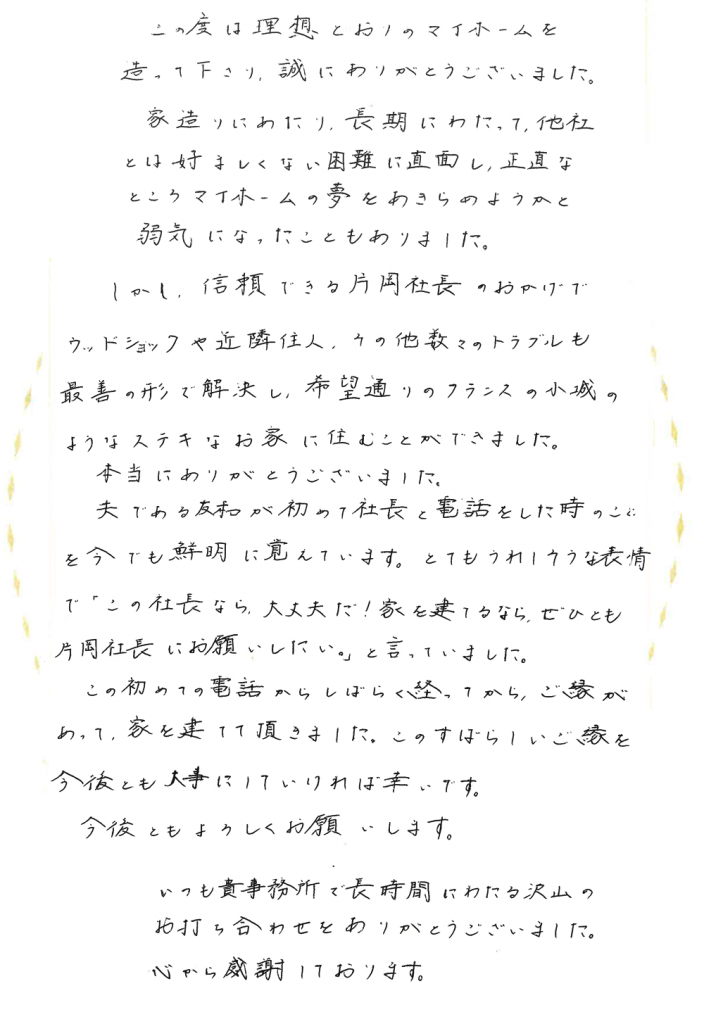 この度は理想とおりのマイホームを
造って下さり、誠にありがとうございました。
家造りにわたり、長期にわたって、他社
とは好ましくない困難に直面し、正直な
ところマイホームの夢をあきらめようかと
弱気になったこともありました。
しかし、信頼できる片岡社長のおかげで
ウッドショックや近隣住人、その他数々のトラブルも
最善の形で解決し、希望通りのフランスの小城の
ようなステキなお家に住むことができました。
本当にありがとうございました。
夫である友和が初めて社長と電話をした時のこと
を今でも鮮明に覚えています。とてもうれしそうな表情
で「この社長なら、大丈夫だ！家を建てるなら、ぜひとも
片岡社長にお願いしたい。」と言っていました。
この初めての電話からしばらく経ってから、ご縁が
あって、家を建てて頂きました。このすばらしいご縁を
今後とも大事にしていければ幸いです。
今後ともよろしくお願いします。
いつも貴事務所で長時間にわたる沢山の
お打ち合わせをありがとうございました。
心から感謝しております。